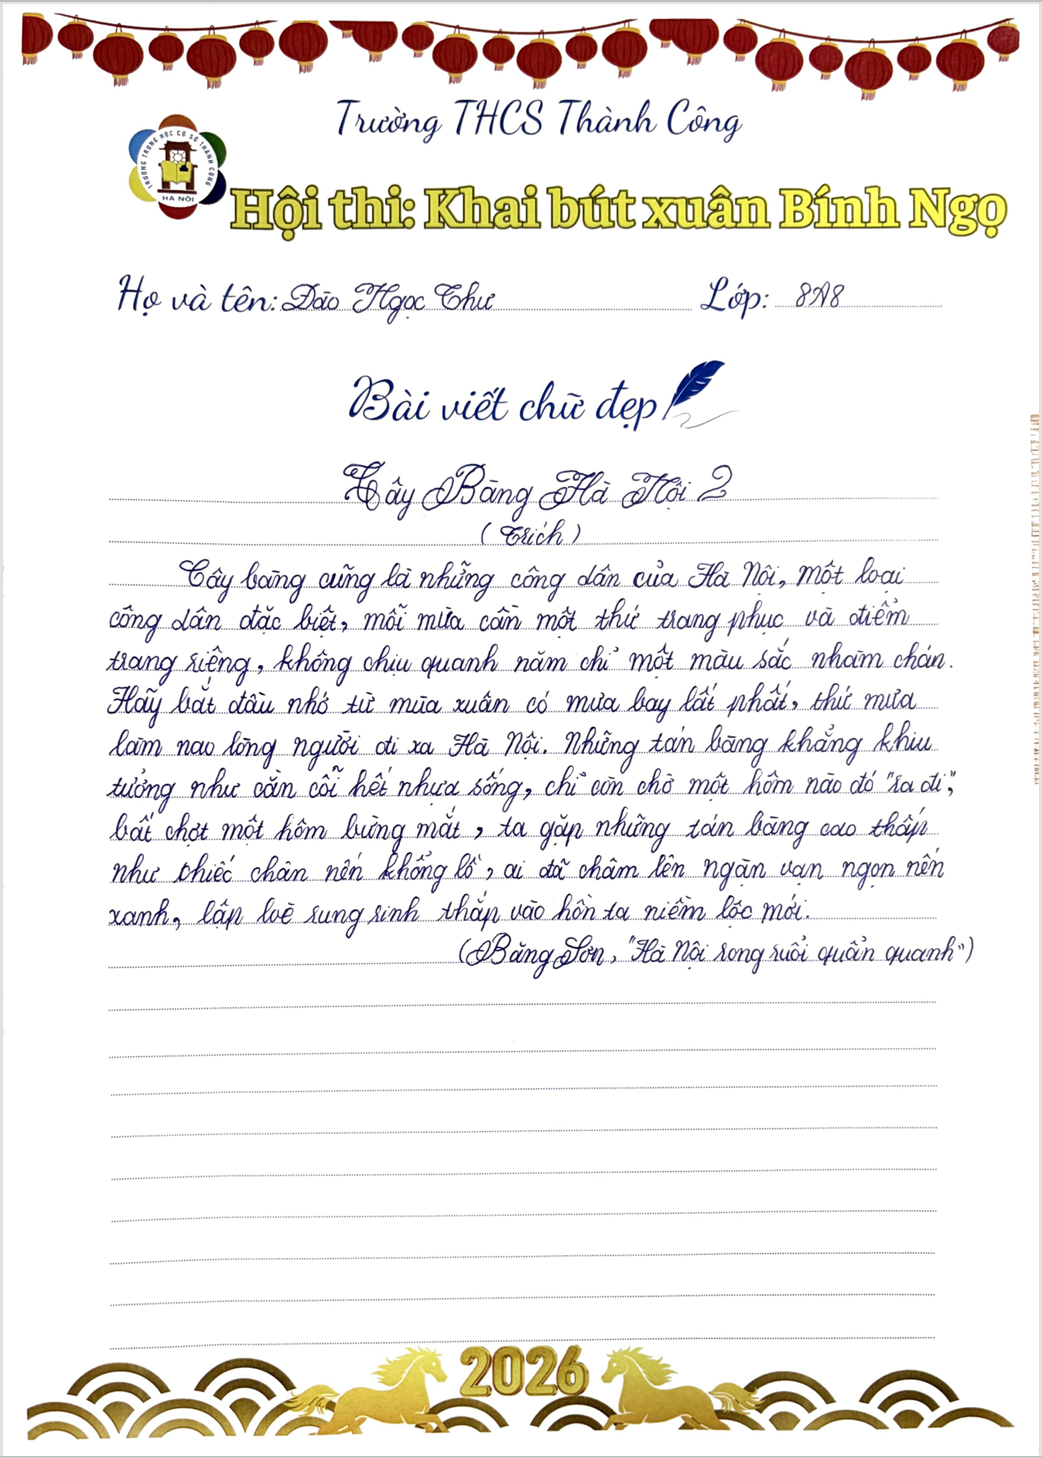 Trường THCS Thành Công
TRƯỜNG TRUNG HỌC CƠ SỞ THÀNH CÔNG
HÀ NỘI
Hội thi: Khai bút xuân Bính Ngọ
Họ và tên: Đào Ngọc Thư Lớp: 8A8
Bài viết chữ đẹp
Cây Bàng Hà Nội 2
( Trích )
Cây bàng cũng là những công dân của Hà Nội, một loại
công dân đặc biệt, mỗi mùa cần một thứ trang phục và điểm
trang riêng, không chịu quanh năm chỉ một màu sắc nhàm chán.
Hãy bắt đầu nhớ từ mùa xuân có mưa bay lất phất, thứ mưa
làm nao lòng người đi xa Hà Nội. Những tán bàng khẳng khiu
tưởng như cằn cỗi hết nhựa sống, chỉ còn chờ một hôm nào đó "ra đi",
bất chợt một hôm bừng mắt, ta gặp những tán bàng cao thấp
như chiếc chân nến khổng lồ, ai đã châm lên ngàn vạn ngọn nến
xanh, lập loè rung rinh thắp vào hồn ta niềm lộc mới.
(Băng Sơn, "Hà Nội rong ruổi quẩn quanh")
2026